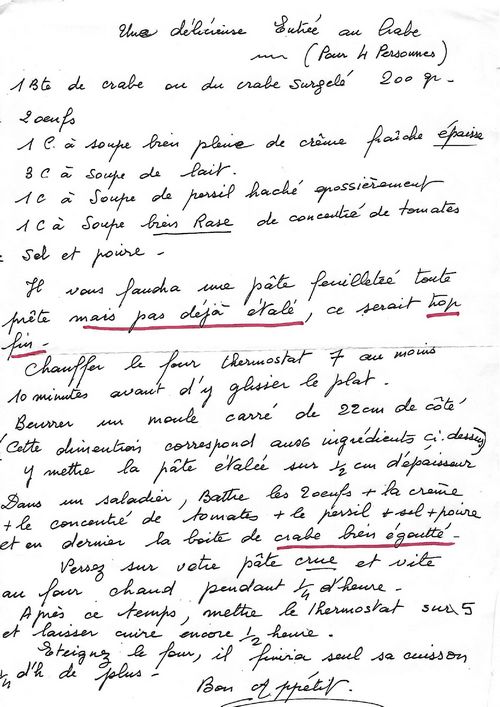 Une délicieuse Entrée au Crabe
(Pour 4 Personnes)
1 Bte de crabe ou du crabe surgelé 200 gr -
2 oeufs
1 C. à soupe bien pleine de crème fraîche épaisse
3 C à Soupe de lait.
1 C à Soupe de persil haché grossièrement
1 C à Soupe bien Rase de concentré de tomates
Sel et poivre -
Il vous faudra une pâte feuilletée toute
prête mais pas déjà étalé, ce serait trop
fin -
Chauffer le four thermostat 7 au moins
10 minutes avant d'y glisser le plat.
Beurrer un moule carré de 22cm de côté
(Cette dimention correspond aux ingrédients ci-dessus)
y mettre la pâte étalée sur 1/2 cm d'épaisseur
Dans un saladier, Battre les 2 oeufs + la crème
+ le concentré de tomates + le persil + sel + poivre
et en dernier la boite de crabe bien égoutté -
Versez sur votre pâte crue et vite
au four chaud pendant 1/4 d'heure -
Après ce temps, mettre le thermostat sur 5
et laisser cuire encore 1/2 heure.
Eteignez le four, il finira seul sa cuisson
1/4 d'h de plus -
Bon Appétit.